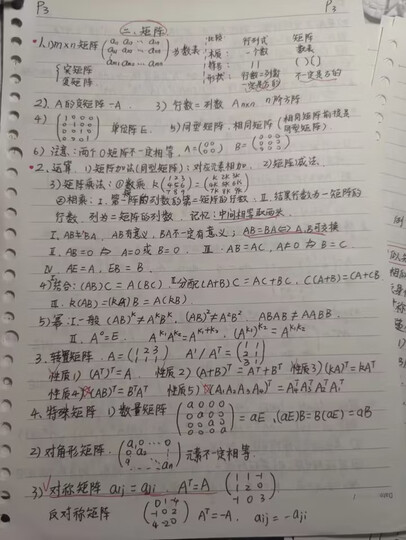 P3 P3
二、矩阵
1.1) m×n矩阵 (a11 a12 … a1n a21 a22 … a2n … am1 am2 … amn) 为数表
比较: 行列式 矩阵
本质: 一个数 数表
符号: | | ( ) [ ]
形状: 行数=列数 不一定是方的
一定是方的
{实矩阵
复矩阵
2). A的负矩阵-A. 3) 行数=列数 An×n n阶方阵
4) (1 0 0 0 0 1 0 0 0 0 1 0 0 0 0 1) 单位阵E. 5) 同型矩阵, 相同矩阵 (相同矩阵前提是同型矩阵)
6) 注意: 两个0矩阵不一定相等. A=(0 0 0 0) B=(0 0 0 0 0 0 0 0 0)
2. 运算. 1) 矩阵加法(同型矩阵): 对应元素相加. 2) 矩阵减法.
3) 矩阵乘法: ①数乘 k(1 2 3 4 5 6 7 8 9) = (k 2k 3k 4k 5k 6k 7k 8k 9k)
②相乘: I. 第一矩阵的列数=第二矩阵的行数. II. 结果行数为一矩阵的
行数, 列为二矩阵的列数. 记忆: 中间相等取两头.
I. AB≠BA. AB有意义, BA不一定有意义; AB=BA⇔A.B可交换
II. AB=0 ⇏ A=0或B=0. III. AB=AC, A≠0 ⇏ B=C.
IV. AE=A, EB=B.
4) 结合: (AB)C=A(BC) II 分配(A+B)C=AC+BC, C(A+B)=CA+CB
III. k(AB)=(kA)B=A(kB)
5) 幂: I. 一般(AB)^k≠A^kB^k. (AB)²≠A²B². ABAB≠AABB.
II. A⁰=E. A^k1A^k2=A^(k1+k2). (A^k1)^k2=A^(k1k2)
3. 转置矩阵. A=(1 2 3 1 1 1) A'/A^T=(1 1 2 1 3 1)
性质1) (A^T)^T=A. 性质2) (A+B)^T=A^T+B^T 性质3) (kA)^T=kA^T
性质4) (AB)^T=B^TA^T 性质5) (A1A2A3A4)^T=A4^TA3^TA2^TA1^T
4. 特殊矩阵 1) 数量矩阵 (a 0 0 0 0 a 0 0 0 0 a 0 0 0 0 a) =aE, (aE)B=B(aE)=aB
2) 对角形矩阵. (a1 0 … 0 0 a2 … an) 元素不一定相等.
3) 对称矩阵 aij=aji. A^T=A (1 1 -1 1 2 0 -1 0 3)
反对称矩阵 (0 1 -4 -1 0 2 4 -2 0) A^T=-A. aij=-aji